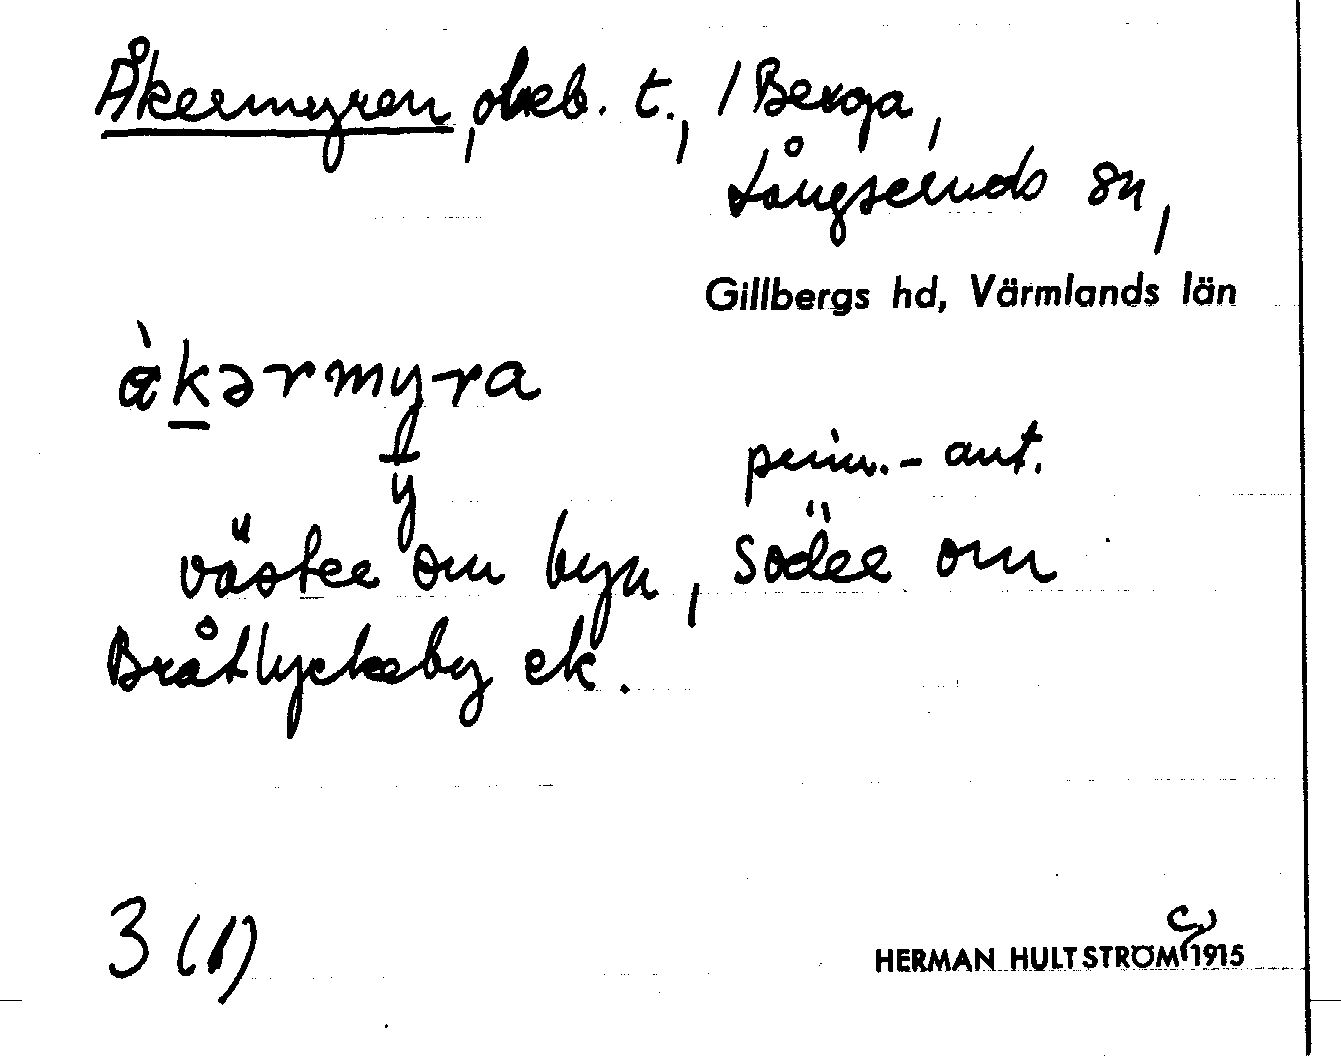 Åkermyren, obeb. t., / Berga,
Långseruds sn,
Gillbergs hd, Värmlands län
àkərmyra
y
prim.-ant.
väster om byn, söder om
Bråtlyckeby ek.
3 (1)
HERMAN HULTSTRÖM 1915